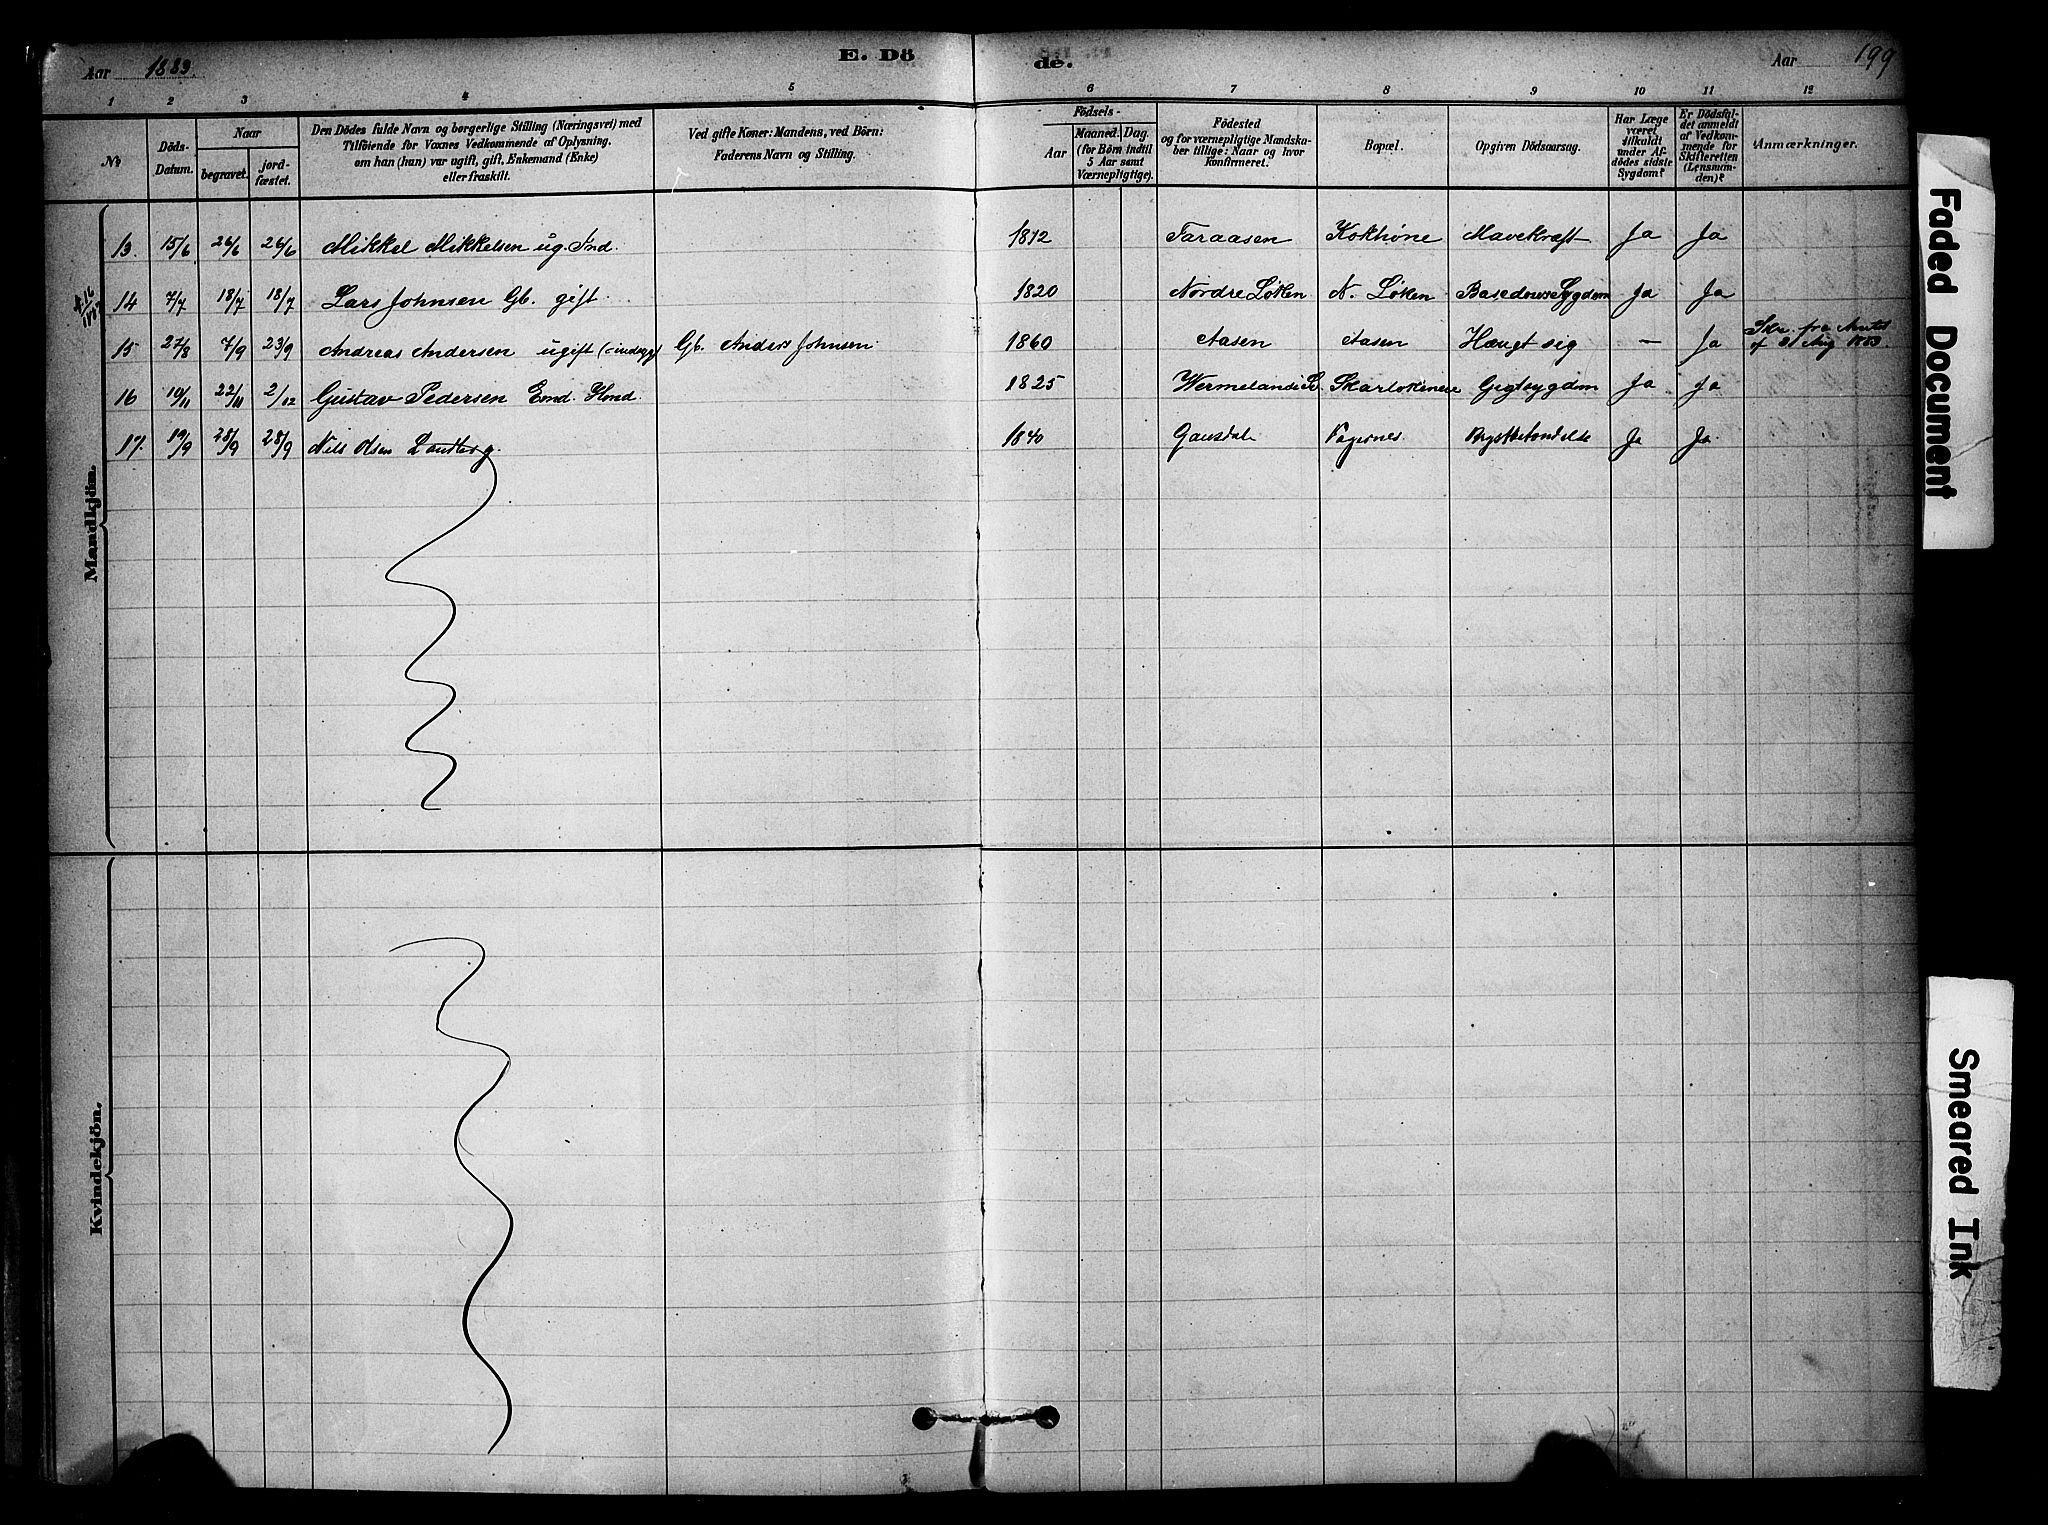 Aar 1883. E. Dö de. Aar 199
1 2 3 4 5 6 7 8 9 10 11 12
No
Döds-Datum.
Naar
begravet. jordfæstet.
Den Dödes fulde Navn og borgerlige Stilling (Næringsvei) med
Tilföiende for Voxnes Vedkommende af Oplysning,
om han (hun) var ugift, gift, Enkemand (Enke)
eller fraskilt.
Ved gifte Koner: Mandens, ved Börn:
Faderens Navn og Stilling.
Födsels-
Aar
Maaned. Dag.
(for Börn indtil
5 Aar samt
Værnepligtige).
Födested
og for værnepligtige Mandska-
ber tillige: Naar og hvor
konfirmeret.
Bopæl.
Opgiven Dödsaarsag.
Har Læge
været
tilkaldt
under Af-
dödes sidste
Sygdom?
Er Dödsfal-
det anmeldt
af Vedkom-
mende for
Skifteretten
(Lensman-
den)?
Anmærkninger.
Mandkjön.
13. 15/6 26/6 26/6 Mikkel Mikkelsen ug. Ind. 1812 Taraasen Mavekræft Ja Ja
14 7/7 18/7 18/7 Lars Johnsen Gb. gift. 1820 Nordre Löken N. Löken Sygdom Ja Ja
15 27/8 7/9 23/9 Andreas Andersen ugift Gb. Anders Johnsen. 1860 Aasen Aasen Hængt sig — Ja Skr. fra Amtet
af 31 Aug 1883.
16 10/11 22/11 2/12 Gustav Pedersen 1825 Gigtsygdom Ja Ja
17. 19/9 28/9 28/9 Nils Olsen 1840 Gausdal Fagernes Brystbetændelse Ja Ja.
Kvindekjön.
Faded Document
Smeared Ink